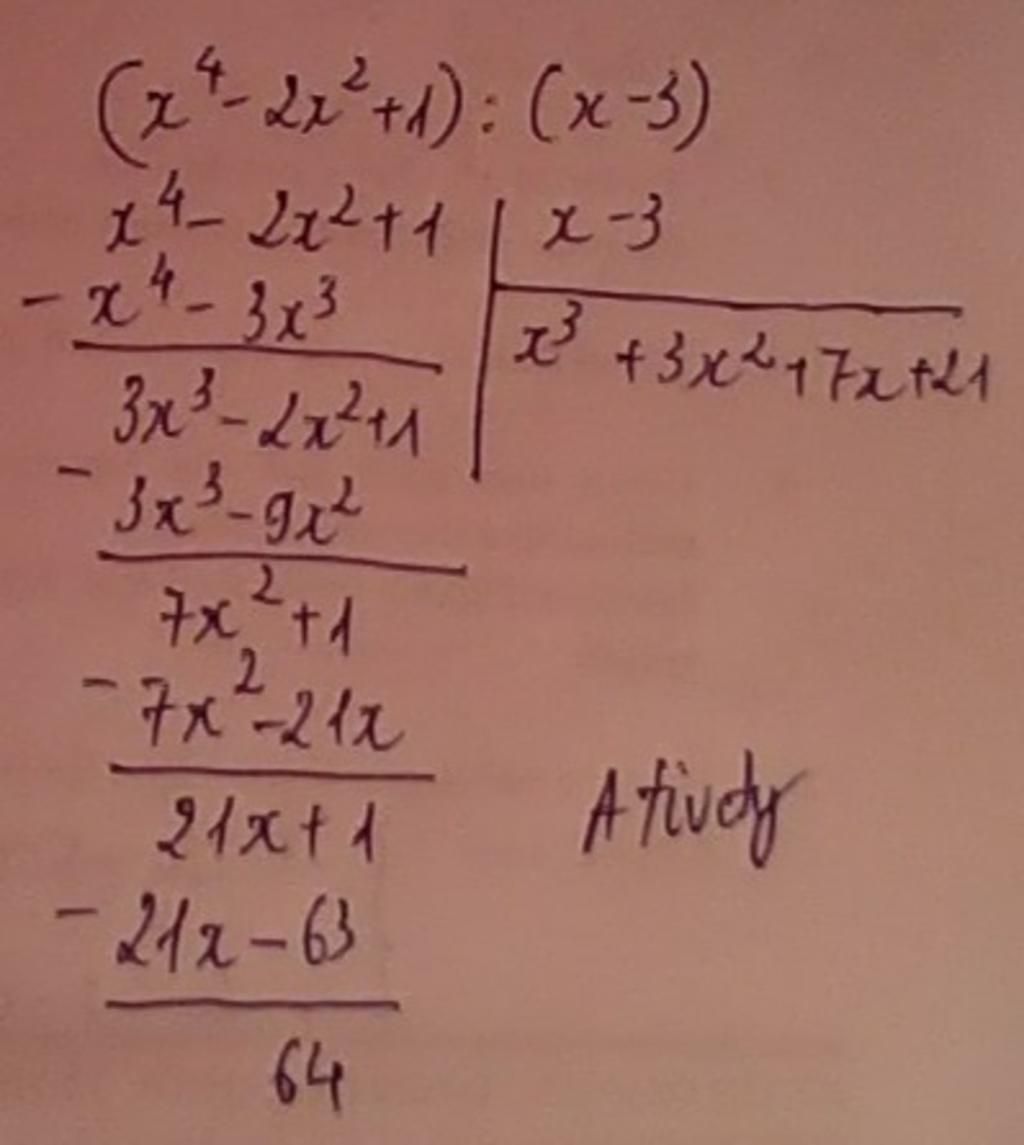 (x⁴ - 2x² + 1) : (x - 3)
x⁴ - 2x² + 1 | x - 3
- x⁴ - 3x³
x³ + 3x² + 7x + 21
3x³ - 2x² + 1
- 3x³ - 9x²
7x² + 1
- 7x² - 21x
21x + 1
Ativdy
- 21x - 63
64